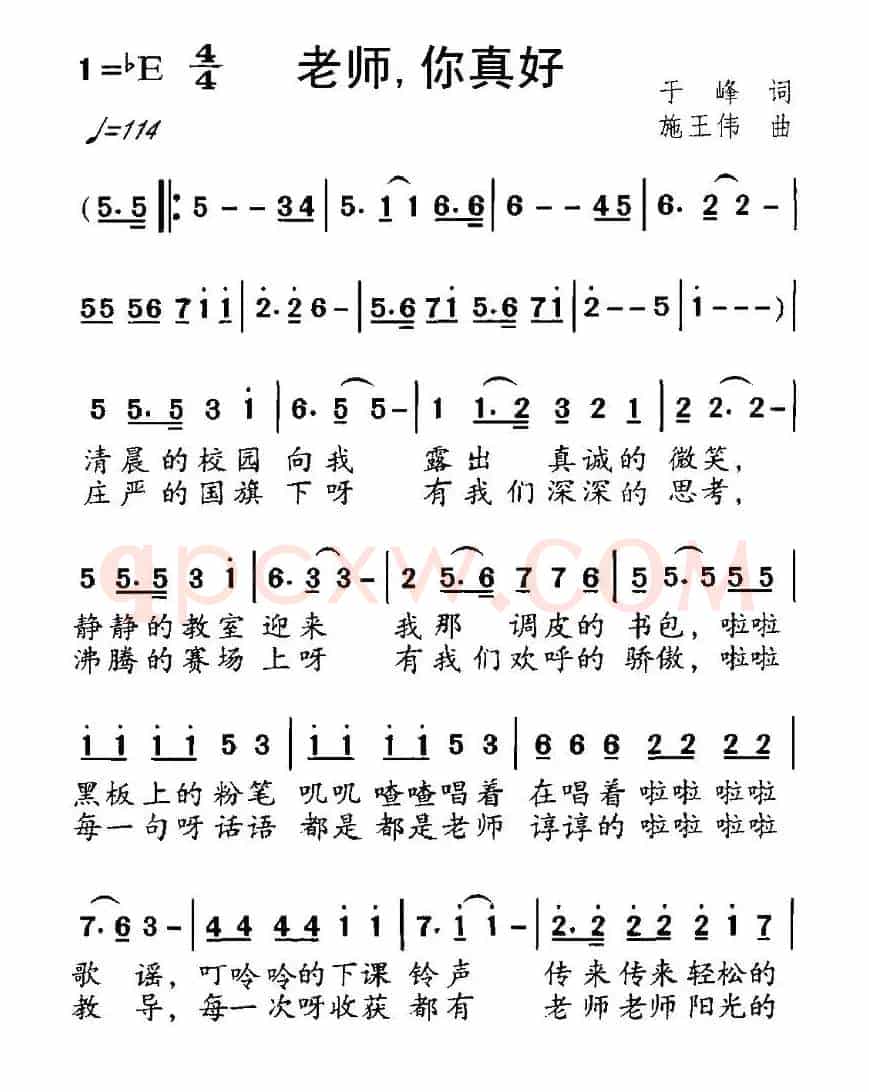 1=♭E 4/4 老师,你真好
于峰 词
♩=114
施王伟 曲
(5.5 ‖: 5 - - 34 | 5. 1 1 6.6 | 6 - - 45 | 6. 2 2 - |
55 56 7 i i | 2. 2 6 - | 5.6 7i 5.6 7i | 2 - - 5 | i - - - ) |
5 5. 5 3 i | 6. 5 5 - | 1 1. 2 3 2 1 | 2 2. 2 - |
清晨的校园 向我 露出 真诚的 微笑,
庄严的国旗 下呀 有我们深深的 思考,
5 5. 5 3 i | 6. 3 3 - | 2 5. 6 7 7 6 | 5 5. 5 5 5 |
qpcxw.COM
静静的教室 迎来 我那 调皮的 书包, 啦啦
沸腾的赛场 上呀 有我们欢呼的 骄傲, 啦啦
i i i i 5 3 | i i i i 5 3 | 6 6 6 6 2 2 2 2 |
黑板上的粉笔 叽叽喳喳唱着 在唱着啦啦啦啦
每一句呀话语 都是都是老师 谆谆的啦啦啦啦
7. 6 3 - | 4 4 4 4 i i | 7. i i - | 2. 2 2 2 2 i 7 |
歌谣, 叮呤呤的下课 铃声 传来传来轻松的
教导, 每一次呀收获 都有 老师老师阳光的